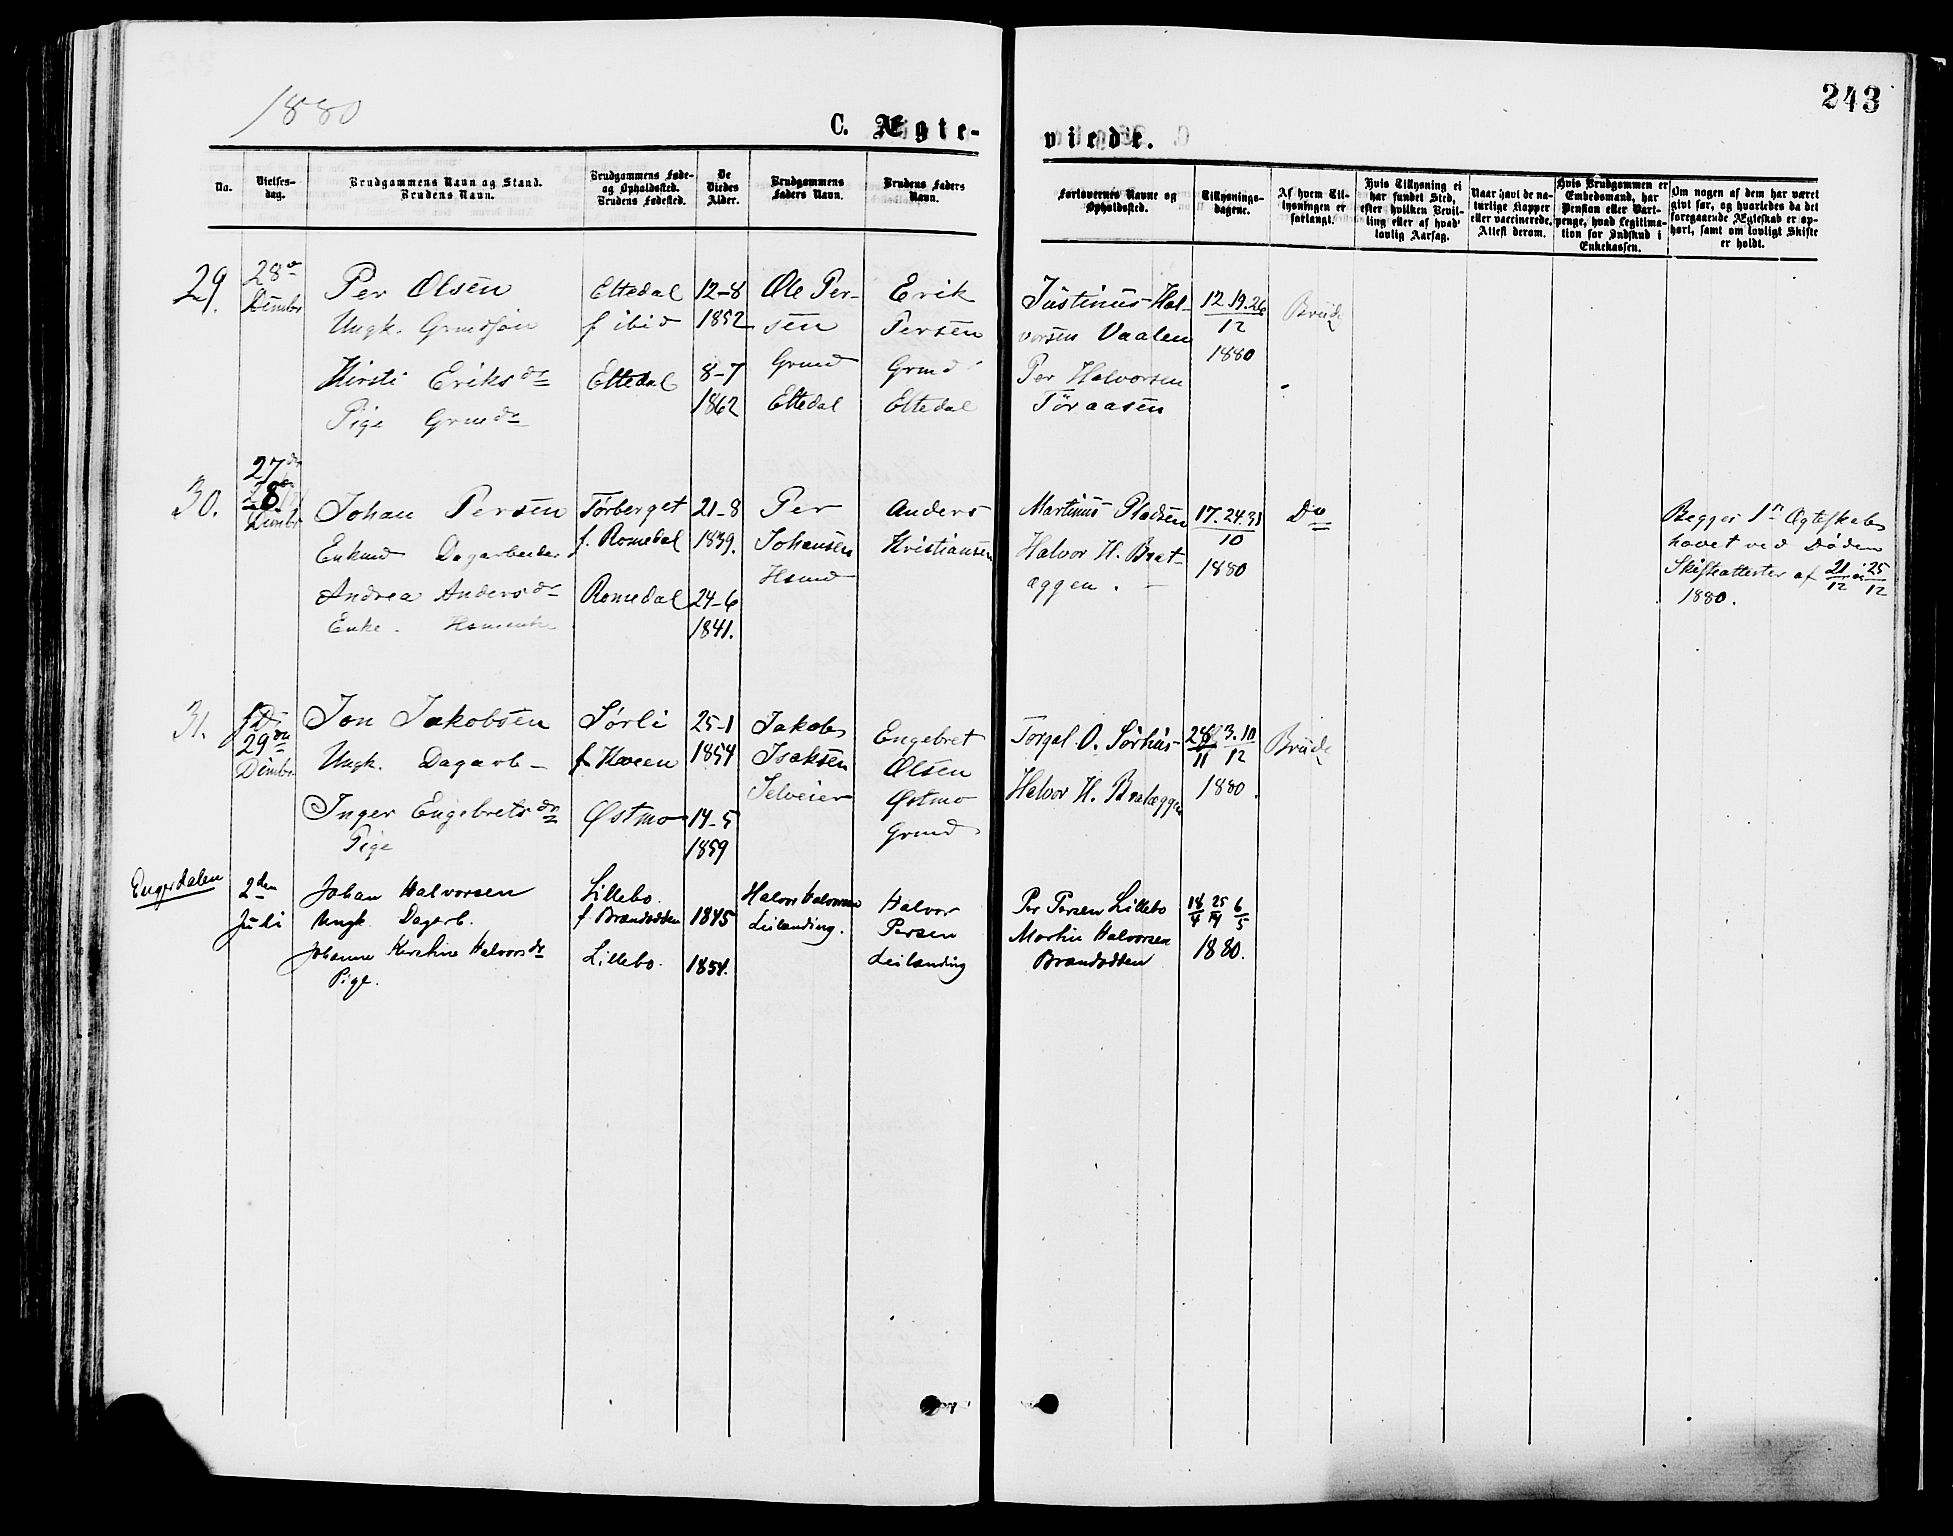 1880
243
C. Ægte-
viede.
No.
Vielses-
dag.
Brudgommens Navn og Stand.
Brudens Navn.
Brudgommens Føde-
og Opholdssted.
Brudens Fødested.
De
Viedes
Alder.
Brudgommens
Faders Navn.
Brudens Faders
Navn.
Forlovernes Navne og
Opholdssted.
Tillysnings-
dagene.
Af hvem Til-
lysningen er
forlangt.
Hvis Tillysning ei
har fundet Sted,
efter hvilken Bevil-
ling eller af hvad
lovlig Aarsag.
Naar havt de na-
turlige Kopper
eller vaccinerede.
Attest derom.
Hvis Brudgommen er
Embedsmand, har
Pension eller Vart-
penge, hvad Legitima-
tion for Indskud i
Enkekassen.
Om nogen af dem har været
gift før, og hvorledes da det
foregaaende Ægteskab er op-
hørt, samt om lovligt Skifte
er holdt.
29.
28de
Per Olsen
Ungk. Grmdsøn
Kirsti Eriksdr
Pige Grmdr
Eltedal
f ibid
Eltedal
12-8
1852
8-7
1862
Ole Per-
sen
Grmd
Eltedal
Erik
Persen
Grmd
Eltedal
Justinus Hal-
vorsen Vaalen
Per Halvorsen
Tøraasen
12.19.26
12
1880
Brud
30.
27de
Johan Persen
Enkmd Dagarbeider
Andrea Andersdr
Enke.
Tørberget
f. Romedal
Romedal
21-8
1839.
24-6
1841.
Per
Johansen
Hsmd
Anders
Kristiansen
Martinus Pladsen
Halvor H. Brat-
æggen.
17.24.31
10
1880
Do
Begges 1ste Ægteskab
hævet ved Døden
Skifteattester af 21/12 & 25/12
1880.
31.
29de
Jon Jakobsen
Ungk. Dagarb
Inger Engebretsdr
Pige
Sørli
Østmo
25-1
1854
14-5
1859
Jakob
Isaksen
Selveier
Engebret
Olsen
Østmo
Grmd
Torgal O. Sørhus
Halvor H. Bratæggen
28/11 3.10/12
1880.
Brud
Engerdalen
2den
Juli
Johan Halvorsen
Ungk Dagarb.
Johanne Kirstine Halvorsdr
Pige.
Lillebo.
f. Brændodden
Lillebo.
1845
1854.
Halvor Halvorsen
Leilending.
Halvor
Persen
Leilending
Per Persen Lillebo
Martin Halvorsen
Brændodden
18/4 25/4 6/5
1880.